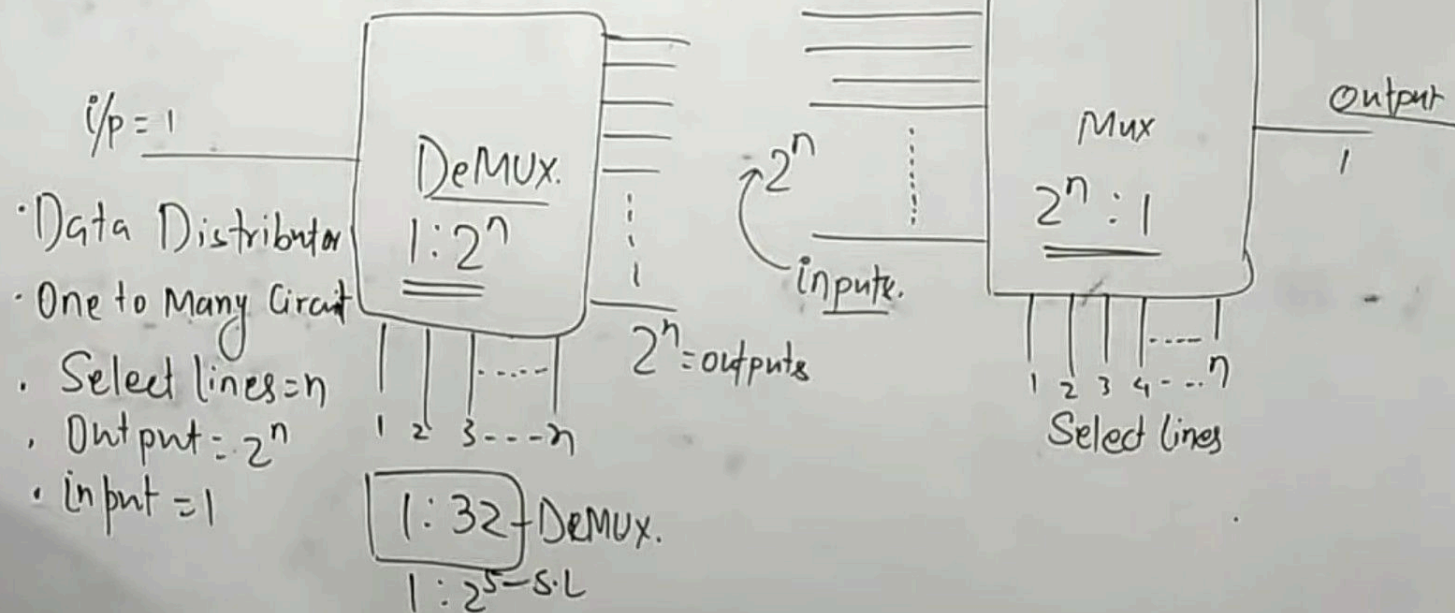 i/p = 1
DeMUX.
1:2ⁿ
• Data Distributor
• One to Many Circuit
• Select lines=n
• Output = 2ⁿ
• input = 1
1 2 3----n
2ⁿ=outputs
1:32-DeMUX.
1:2⁵-S.L
2ⁿ
inputs.
Mux
2ⁿ:1
Output
1
1 2 3 4-...n
Select lines